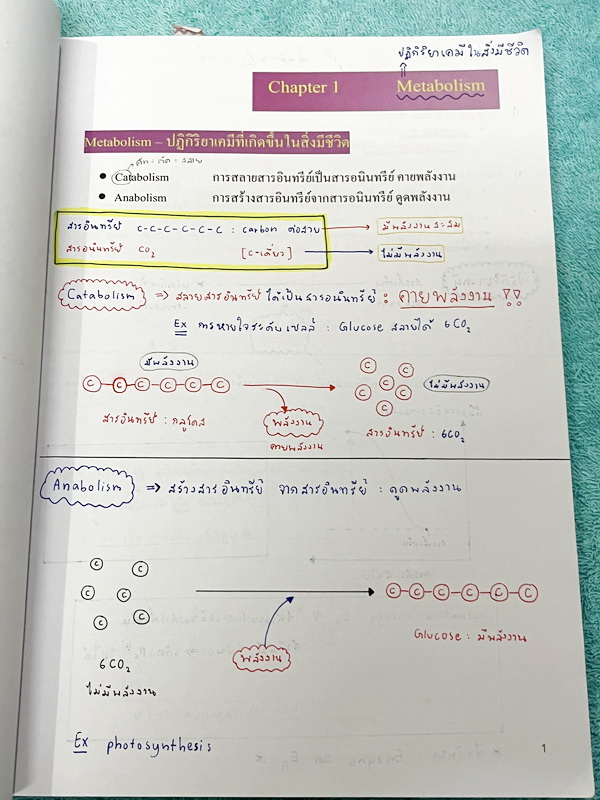 ปฏิกิริยาเคมีในสิ่งมีชีวิต
Chapter 1 Metabolism
Metabolism – ปฏิกิริยาเคมีที่เกิดขึ้นในสิ่งมีชีวิต
Catabolism การสลายสารอินทรีย์เป็นสารอนินทรีย์ คายพลังงาน
Anabolism การสร้างสารอินทรีย์จากสารอนินทรีย์ ดูดพลังงาน
สารอินทรีย์ C-C-C-C-C-C : carbon ต่อสาย → มีพลังงานสะสม
สารอนินทรีย์ CO2 [C-เดี่ยว] → ไม่มีพลังงาน
Catabolism ⇒ สลายสารอินทรีย์ ได้เป็นสารอนินทรีย์ : คายพลังงาน !!
Ex การหายใจระดับเซลล์ : Glucose สลายได้ 6CO2
มีพลังงาน
ไม่มีพลังงาน
C C C C C C
C C C C C C
สารอินทรีย์ : กลูโคส
พลังงาน
คายพลังงาน
สารอินทรีย์ : 6CO2
Anabolism ⇒ สร้างสารอินทรีย์ จากสารอินทรีย์ : ดูดพลังงาน
C C C C C C
C C C C C C
พลังงาน
Glucose : มีพลังงาน
6CO2
ไม่มีพลังงาน
Ex photosynthesis
1